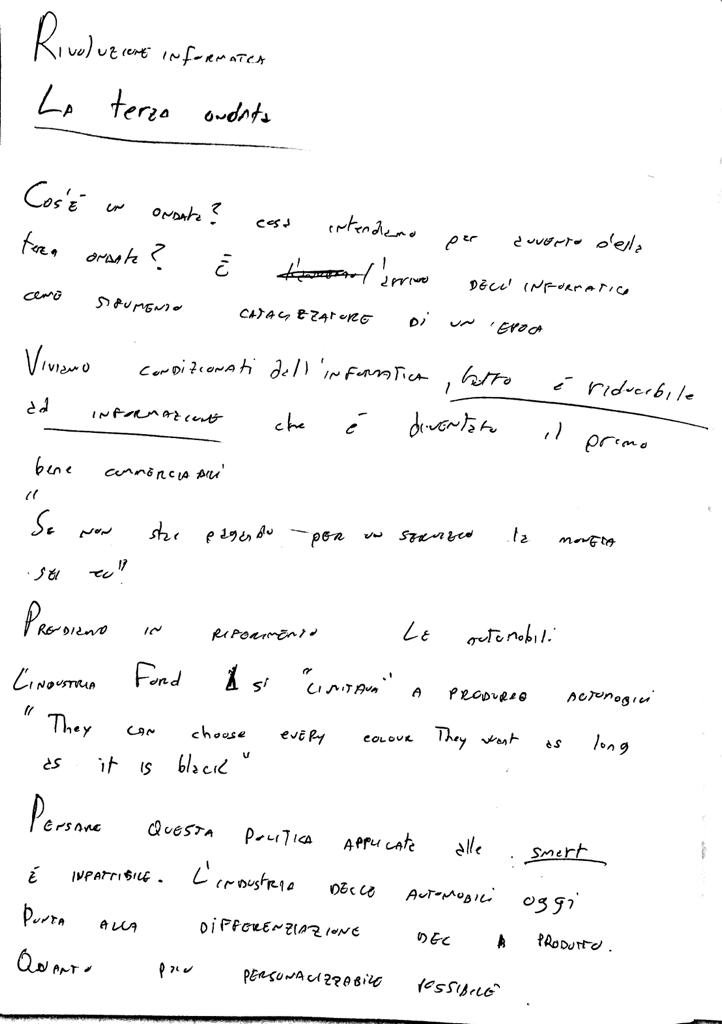 Rivoluzione informatica
La terza ondata
Cos'è un ondata? cosa intendiamo per avvento della
terza ondata? È l'arrivo dell'informatica
come strumento catalizzatore di un'epoca
Viviamo condizionati dall'informatica, tutto è riducibile
ad informazione che è diventato il primo
bene commerciabile
"Se non stai pagando per un servizio la moneta
sei tu"
Prendiamo in riferimento le automobili.
L'industria Ford si "limitava" a produrre automobili
"They can choose every colour They want as long
as it is black"
Pensare questa politica applicata alle smart
è infattibile. L'industria delle automobili oggi
punta alla differenziazione del prodotto.
Quanto più personalizzabile possibile